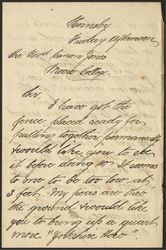 Hornsby
Friday afternoon
the Revd Canon Jones
Moore College
Sir,
I have got the
fence placed ready for
putting together permanently
& would like you to see
it before doing so. It seems
to me to be too low at
3 feet. My peas are two
the ground & would like
you to bring up a quart
more "Yorkshire Hero"